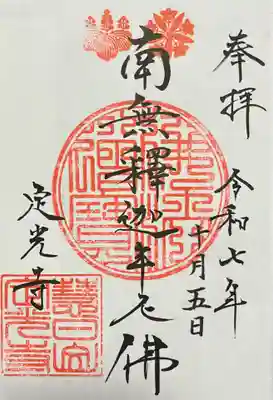 奉拝
令和七年
十月五日
南無釋迦牟尼佛
定光寺